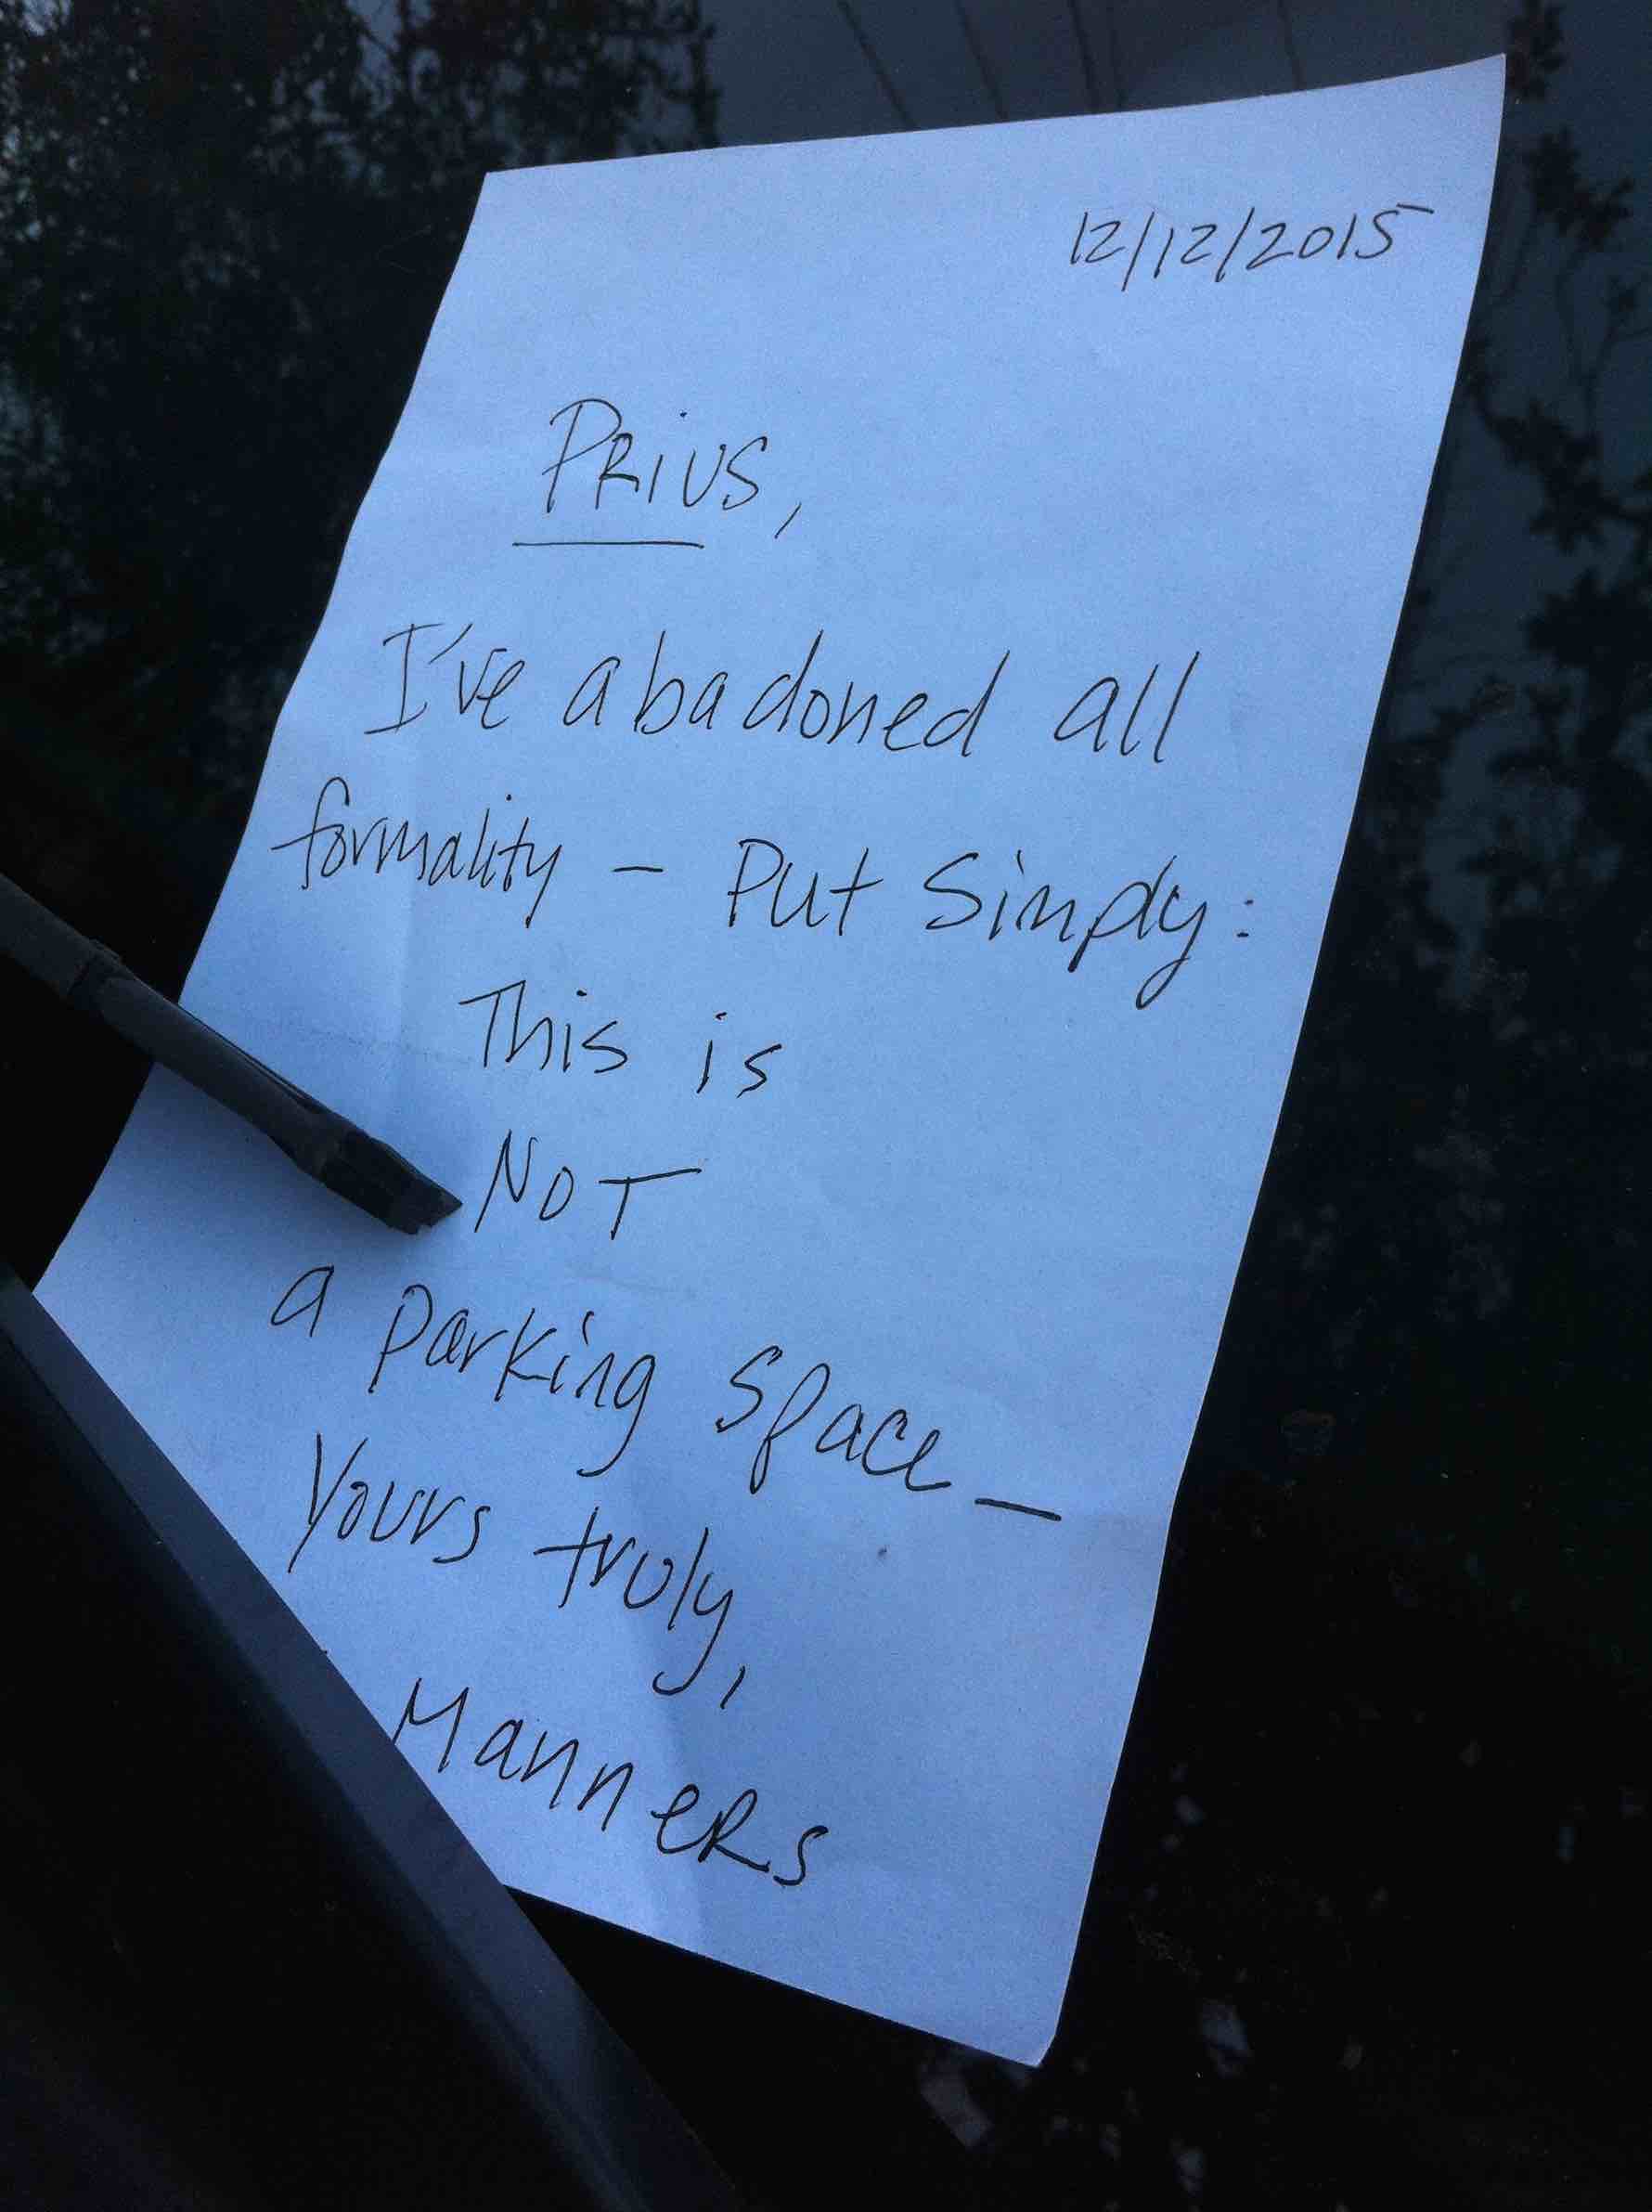 12/12/2015
PRiUS,
I've abadoned all
formality - Put Simply:
This is
NOT
a parking space -
Yours truly,
ManneRs